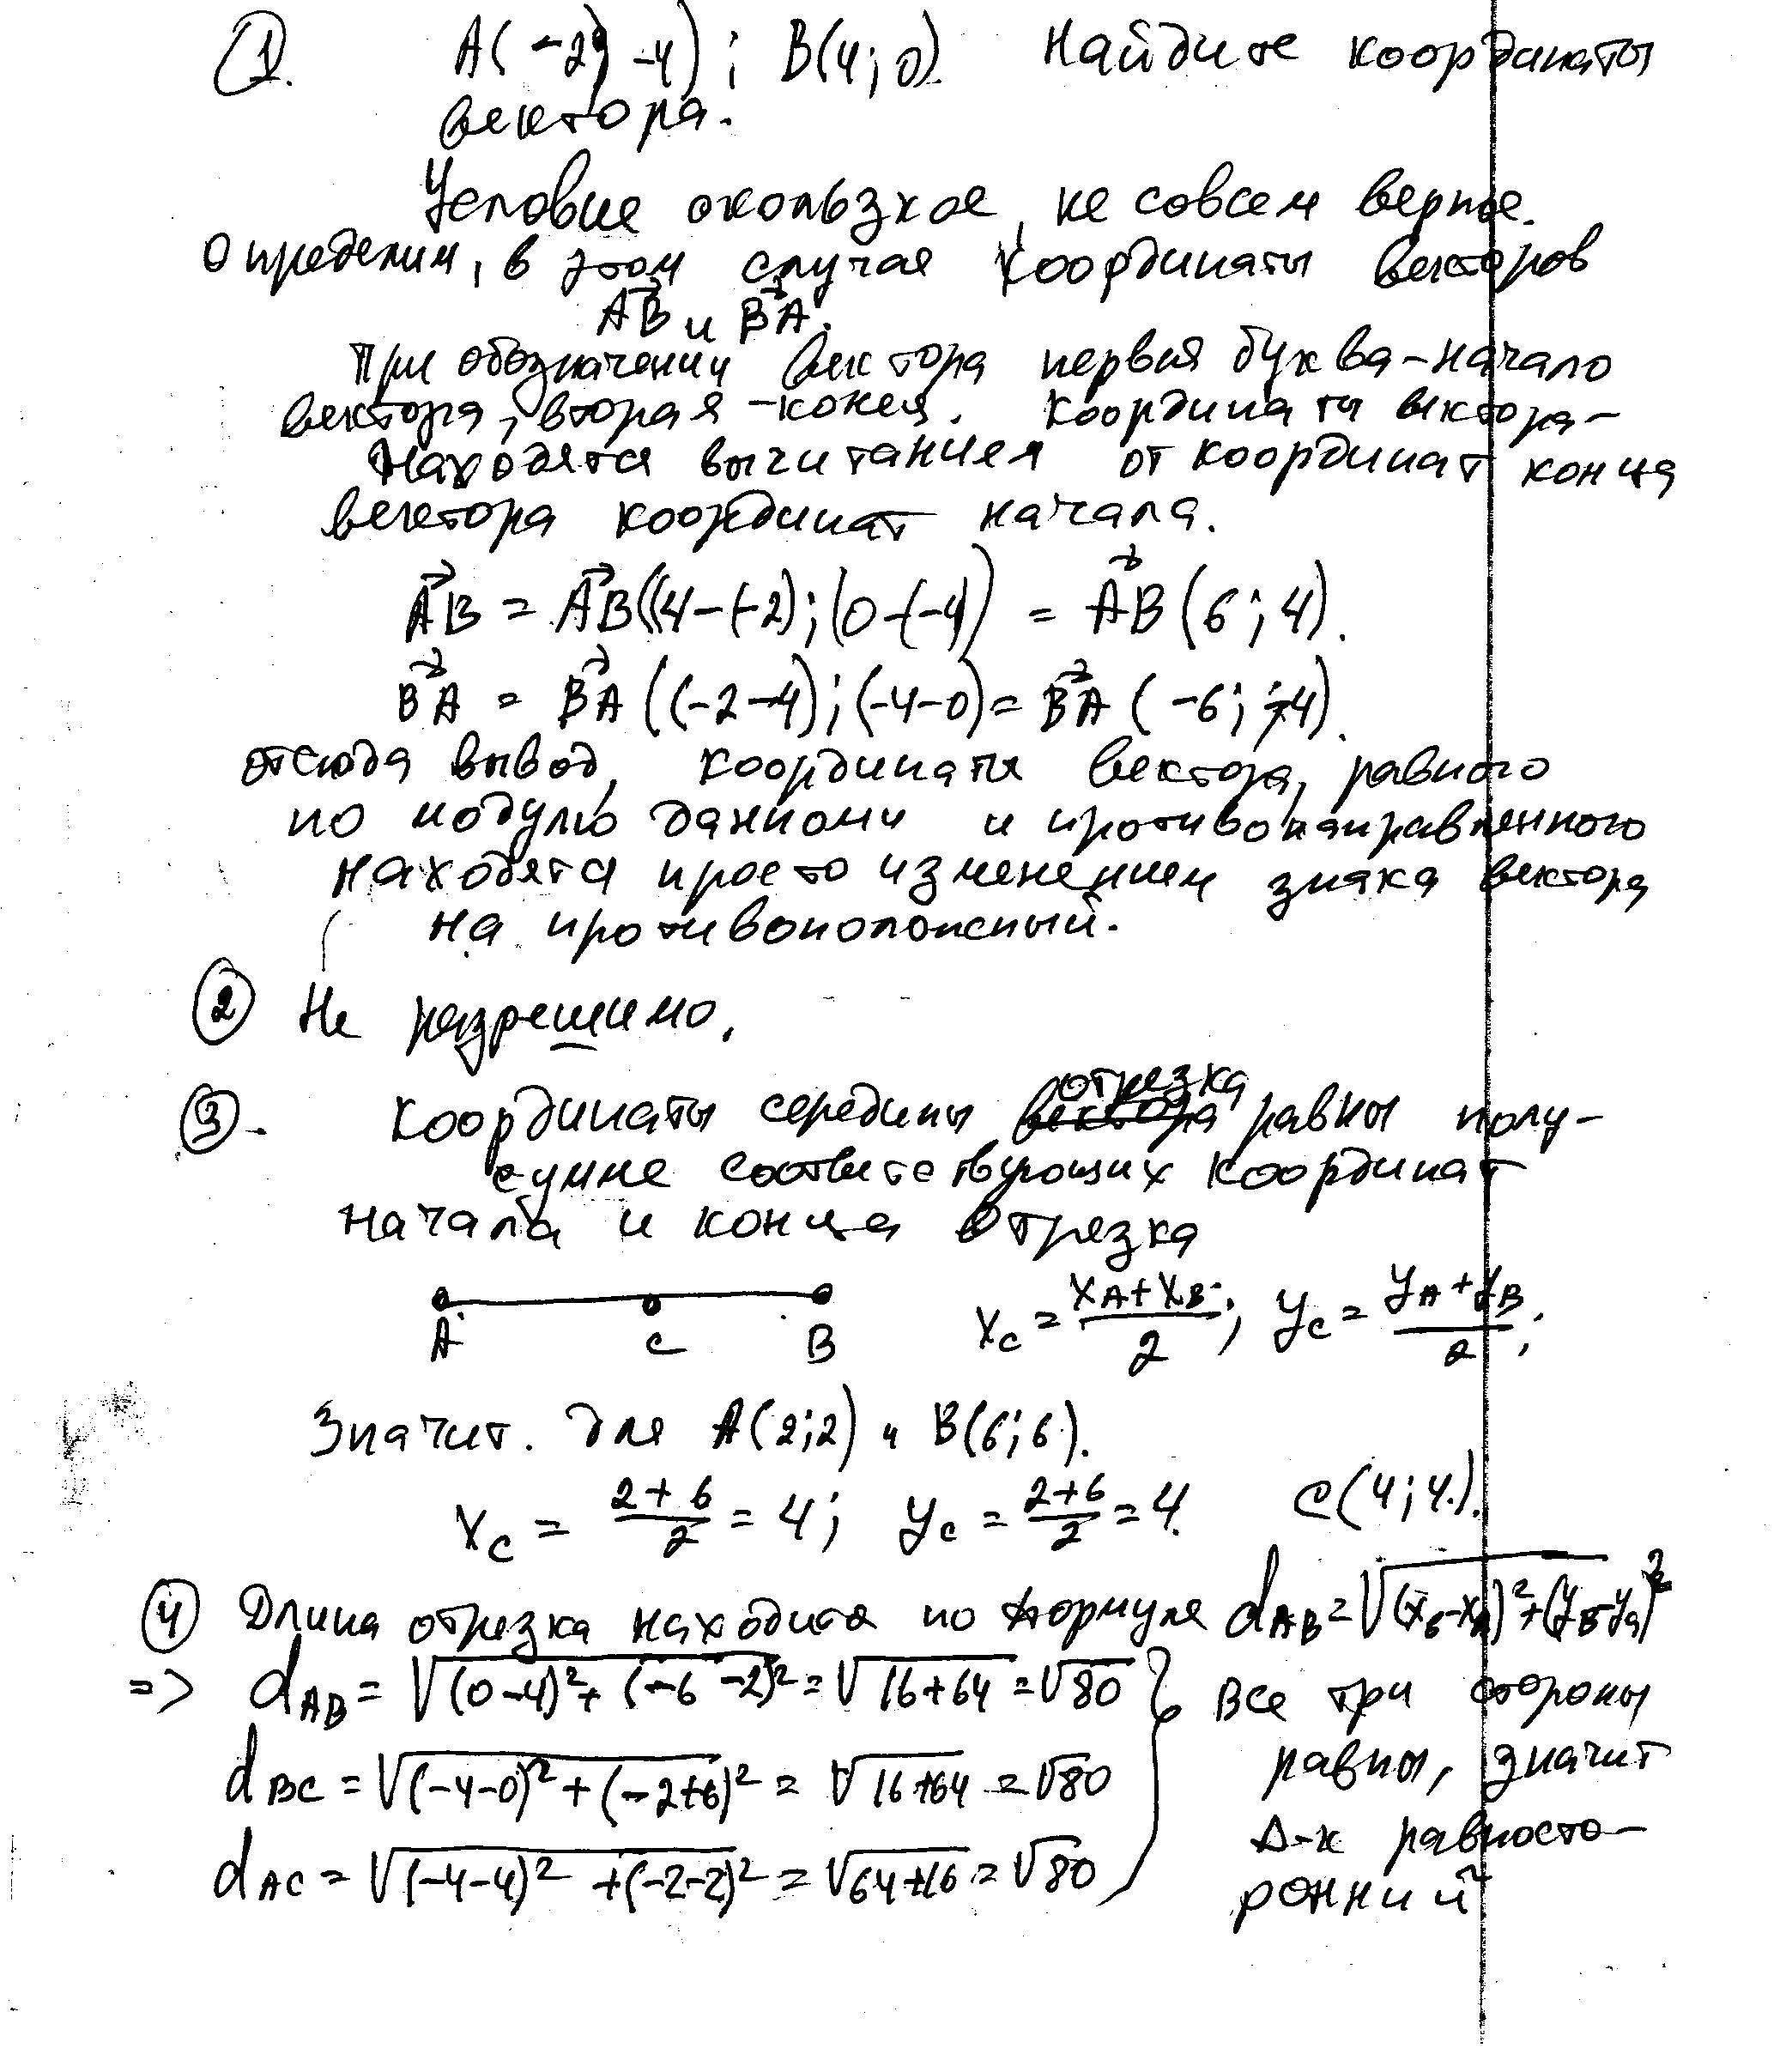 1. A(-2; -4); B(4; 0). Найдите координаты
вектора.
Условие скользкое, не совсем верное.
Определим, в этом случае координаты векторов
AB и BA.
При обозначении вектора первая буква - начало
вектора, вторая - конец. Координаты вектора -
находятся вычитанием от координат конца
вектора координат начала.
AB = AB((4-(-2); (0-(-4)) = AB (6; 4).
BA = BA ((-2-4); (-4-0) = BA (-6; -4).
отсюда вывод, координаты вектора, равного
по модулю данному и противонаправленного
находятся просто изменением знака вектора
на противоположный.
2 Не разрешимо.
3. Координаты середины вектора отрезка равны полу-
сумме соответствующих координат
начала и конца отрезка
A C B xC = (xA + xB)/2; yC = (yA + yB)/2;
Значит. для A(2;2) и B(6;6).
xC = (2+6)/2 = 4; yC = (2+6)/2 = 4. C(4; 4.).
4 Длина отрезка находится по формуле dAB = √(xB-xA)²+(yB-yA)²
=> dAB = √(0-4)²+(-6-2)² = √16+64 = √80 } Все три стороны
dBC = √(-4-0)²+(-2+6)² = √16+64 = √80 равны, значит
Δ-к равносто-
dAC = √(-4-4)²+(-2-2)² = √64+16 = √80
ронний